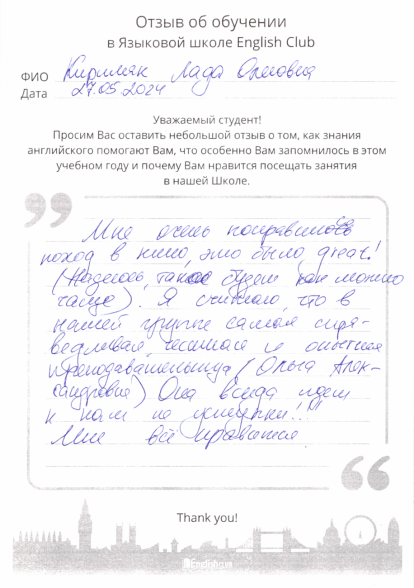 Отзыв об обучении
в Языковой школе English Club
ФИО Киримяк Лада Олеговна
Дата 27.05.2024
Уважаемый студент!
Просим Вас оставить небольшой отзыв о том, как знания
английского помогают Вам, что особенно Вам запомнилось в этом
учебном году и почему Вам нравится посещать занятия
в нашей Школе.
Мне очень понравился
поход в кино, это было great!
(Надеюсь, такое будет как можно
чаще). Я считаю, что в
нашей группе самая спра-
ведливая, честная и опытная
преподавательница (Ольга Алек-
сандровна) Она всегда идет
к нам на уступки!!!
Мне всё нравится
Thank you!
English Club